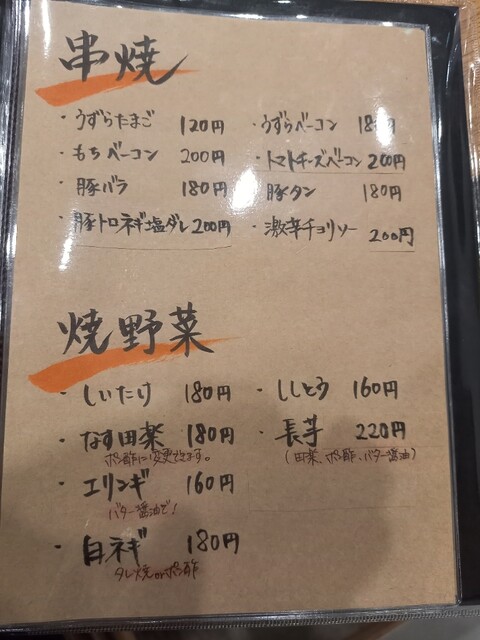 串焼
・うずらたまご 120円 ・うずらベーコン 180円
・もちベーコン 200円 ・トマトチーズベーコン 200円
・豚バラ 180円 豚タン 180円
・豚トロネギ塩ダレ 200円 ・激辛チョリソー 200円
焼野菜
・しいたけ 180円 ・ししとう 160円
・なす田楽 180円 ・長芋 220円
ポン酢に変更できます。 (田楽、ポン酢、バター醤油)
・エリンギ 160円
バター醤油で!
・白ネギ 180円
タレ焼orポン酢